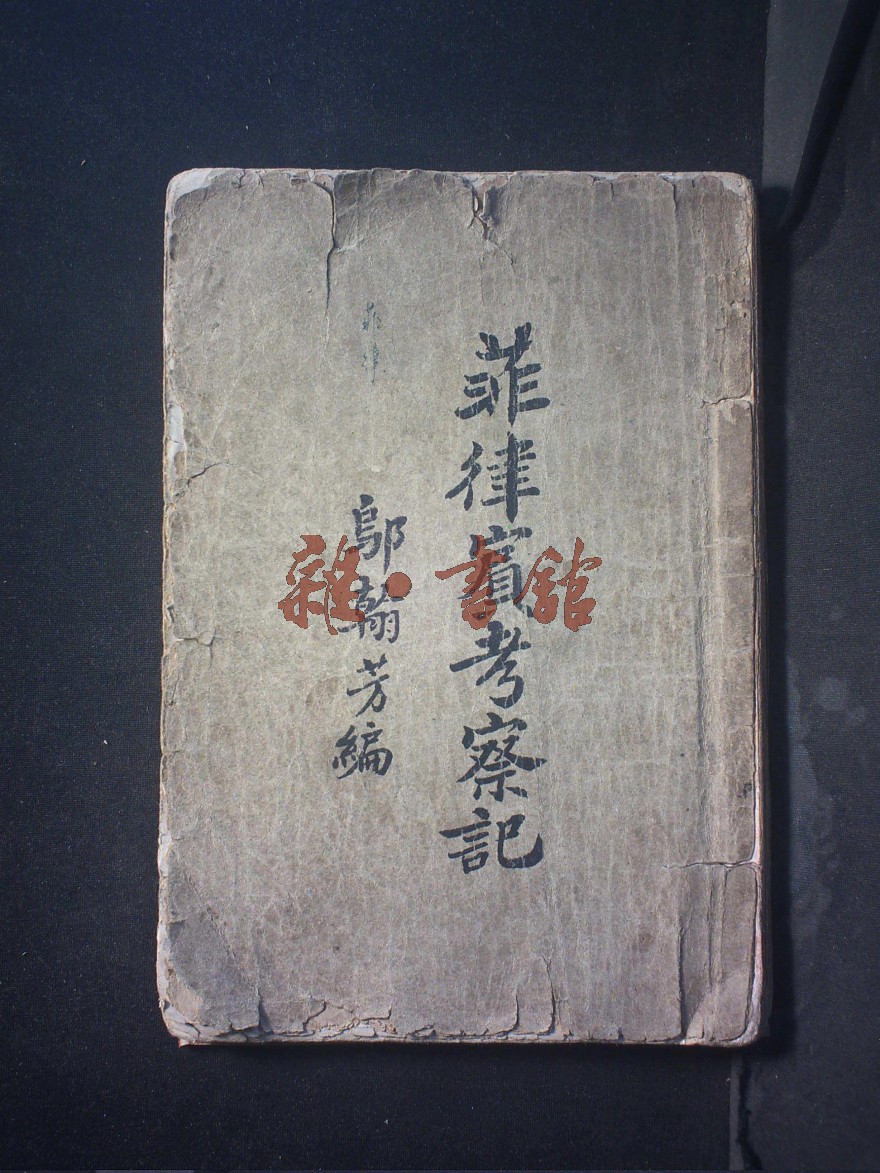 菲律賓考察記
鄔翰芳編
菲律
雜·書館